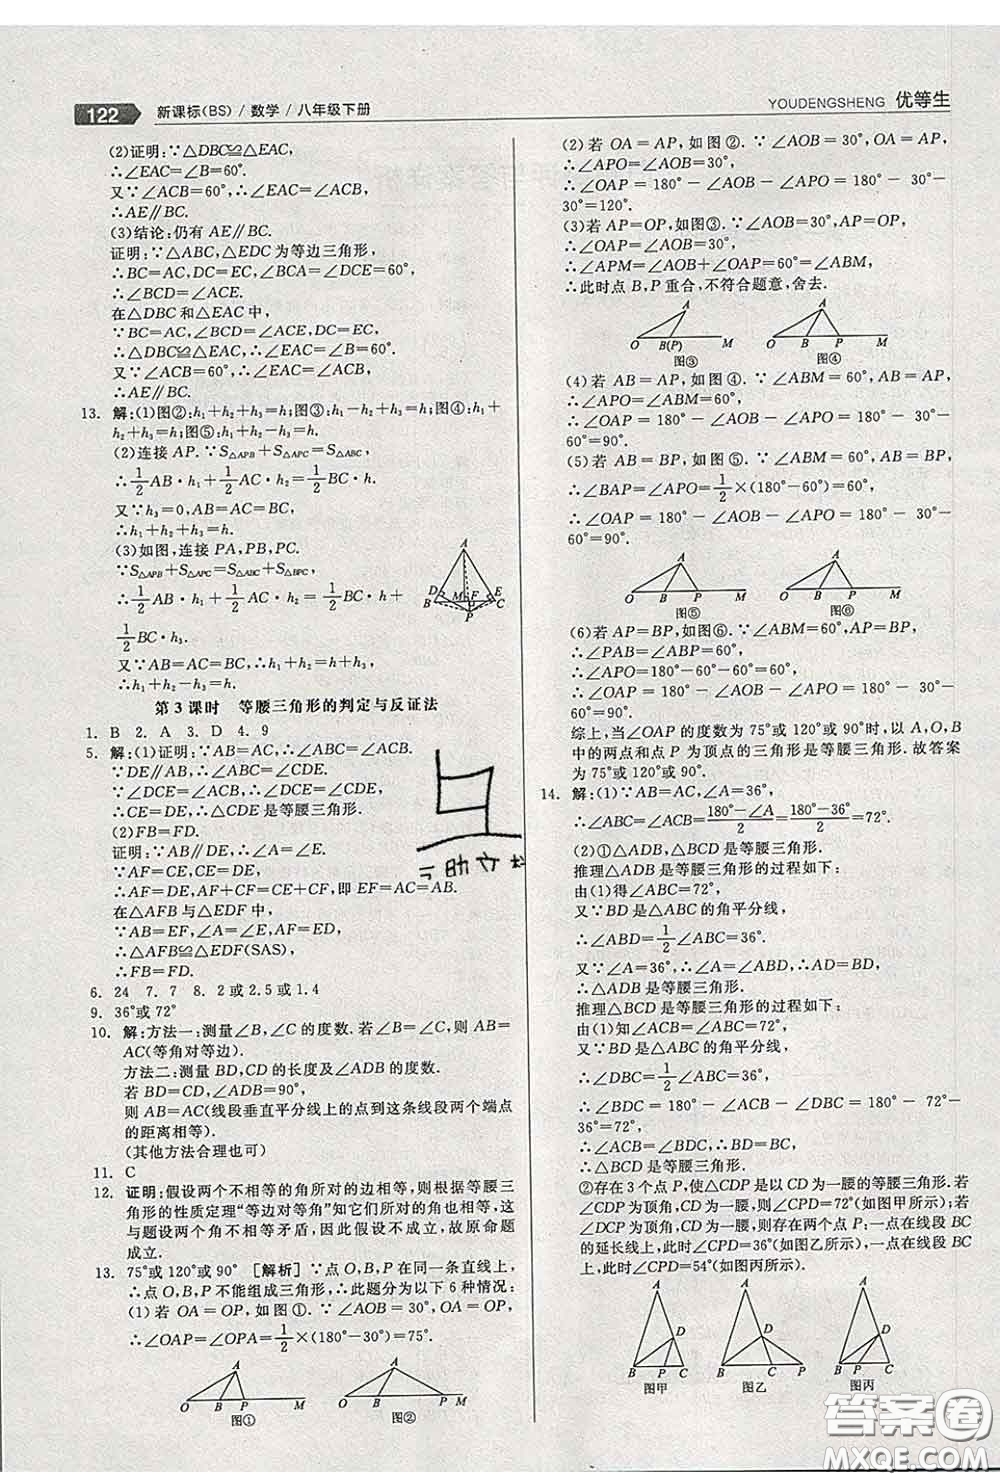 122 新课标(BS)/数学/八年级下册
YOUDENGSHENG 优等生
(2)证明:∵△DBC≌△EAC,
∴∠EAC=∠B=60°.
又∵∠ACB=60°,∴∠EAC=∠ACB,
∴AE∥BC.
(3)结论:仍有 AE∥BC.
证明:∵△ABC,△EDC为等边三角形,
∴BC=AC,DC=EC,∠BCA=∠DCE=60°,
∴∠BCD=∠ACE.
在△DBC和△EAC中,
∵BC=AC,∠BCD=∠ACE,DC=EC,
∴△DBC≌△EAC,∴∠EAC=∠B=60°.
又∵∠ACB=60°,∴∠EAC=∠ACB,
∴AE∥BC.
13. 解:(1)图②:h₁+h₂+h₃=h;图③:h₁-h₂+h₃=h;图④:h₁+
h₂+h₃=h;图⑤:h₁+h₂-h₃=h.
(2)连接 AP.∵S△APB+S△APC=S△ABC,
∴1/2AB·h₁+1/2AC·h₂=1/2BC·h.
又∵h₃=0,AB=AC=BC,
∴h₁+h₂+h₃=h.
(3)如图,连接 PA,PB,PC.
∵S△APB+S△APC=S△ABC+S△BPC,
∴1/2AB·h₁+1/2AC·h₂=1/2BC·h+
1/2BC·h₃.
又∵AB=AC=BC,∴h₁+h₂=h+h₃,
∴h₁+h₂-h₃=h.
A
D M F E
B P C
第3课时 等腰三角形的判定与反证法
1. B 2. A 3. D 4. 9
5. 解:(1)证明:∵AB=AC,∴∠ABC=∠ACB.
∵DE∥AB,∴∠ABC=∠CDE.
∵∠DCE=∠ACB,∴∠DCE=∠CDE,
∴CE=DE,∴△CDE是等腰三角形.
(2)FB=FD.
证明:∵AB∥DE,∴∠A=∠E.
∵AF=CE,CE=DE,∴AF=DE,
∴AE=AF+EF=CE+EF=CF.
∴AF=DE,AF+CF=CE+CF,即EF=AC=AB.
在△AFB与△EDF中,
∵AB=EF,∠A=∠E,AF=DE,
∴△AFB≌△EDF(SAS),
∴FB=FD.
6. 24 7. 7 8. 2或2.5或1.4
9. 36°或72°
10. 解:方法一:测量∠B,∠C的度数.若∠B=∠C,则 AB=
AC(等角对等边).
方法二:测量BD,CD的长度及∠ADB的度数.
若 BD=CD,∠ADB=90°,
则 AB=AC(线段垂直平分线上的点到这条线段两个端点
的距离相等).
(其他方法合理也可)
11. C
12. 证明:假设两个不相等的角所对的边相等,则根据等腰三
角形的性质定理“等边对等角”知它们所对的角相等,这
与题设两个角不相等矛盾,因此假设不成立,故原命题
成立.
13. 75°或120°或90° [解析]∵点O,B,P在同一条直线上,
∴点O,B,P不能组成三角形,∴此题分为以下6种情况:
(1)若 OA=OP,如图①.∵∠AOB=30°,
∴∠OAP=∠OPA=1/2×(180°-30°)=75°.
A
O B P M
图①
A
O B P M
图②
(2)若 OA=AP,如图②.∵∠AOB=30°,
∴∠APO=∠AOB=30°,
∴∠OAP=180°-∠AOB-∠APO=180°-30°-
30°=120°.
(3)若 AP=OP,如图③.∵∠AOB=30°,
∴∠OAP=∠AOB=30°,
∴∠APM=∠AOB+∠OAP=60°=∠ABM,
∴此时点B,P重合,不符合题意,舍去.
A
O B(P) M
图③
A
O B P M
图④
(4)若 AB=AP,如图④.∵∠ABM=60°,
∴∠APO=∠ABM=60°,
∴∠OAP=180°-∠AOB-∠APO=180°-30°-
60°=90°.
(5)若 AB=BP,如图⑤.∵∠ABM=60°,
∴∠BAP=∠APO=1/2×(180°-60°)=60°,
∴∠OAP=180°-∠AOB-∠APO=180°-30°-
60°=90°.
A
O B P M
图⑤
A
O B P M
图⑥
(6)若 AP=BP,如图⑥.∵∠ABM=60°,
∴∠PAB=∠ABM=60°,
∴∠APO=180°-60°-60°=60°,
∴∠OAP=180°-∠AOB-∠APO=180°-30°-
60°=90°.
综上,当∠OAP的度数为75°或120°或90°时,以A,O,B
中的两点和点P为顶点的三角形是等腰三角形.故答案
为75°或120°或90°.
14. 解:(1)∵AB=AC,∠A=36°,
∴∠ABC=∠ACB=(180°-∠A)/2=(180°-36°)/2=72°.
(2)①△ADB,△BCD是等腰三角形.
推理△ADB是等腰三角形的过程如下:
由(1)得∠ABC=72°.
又∵BD是△ABC的角平分线,
∴∠ABD=1/2∠ABC=36°.
又∵∠A=36°,∴∠A=∠ABD,∴AD=BD,
∴△ADB是等腰三角形.
推理△BCD是等腰三角形的过程如下:
由(1)知∠ABC=∠ACB=72°,
又∵BD是△ABC的角平分线,
∴∠DBC=1/2∠ABC=36°,
∴∠BDC=180°-∠ACB-∠DBC=180°-72°-
36°=72°,
∴∠ACB=∠BDC,∴BD=BC,
∴△BCD是等腰三角形.
②存在3个点P,使△CDP是以CD为一腰的等腰三角形.
当△CDP以CD,CP为一腰,则∠CPD=72°(如图甲所示);若
∠DCP为顶角,CD为一腰,则存在两个点P:一点在线段BC
的延长线上,此时∠CPD=36°(如图乙所示);一点在线段BC
上,此时∠CPD=54°(如图丙所示).
A
D
B P C
图甲
A
D
B C P
图乙
A
D
B P C
图丙
答案圈
MXQE.COM